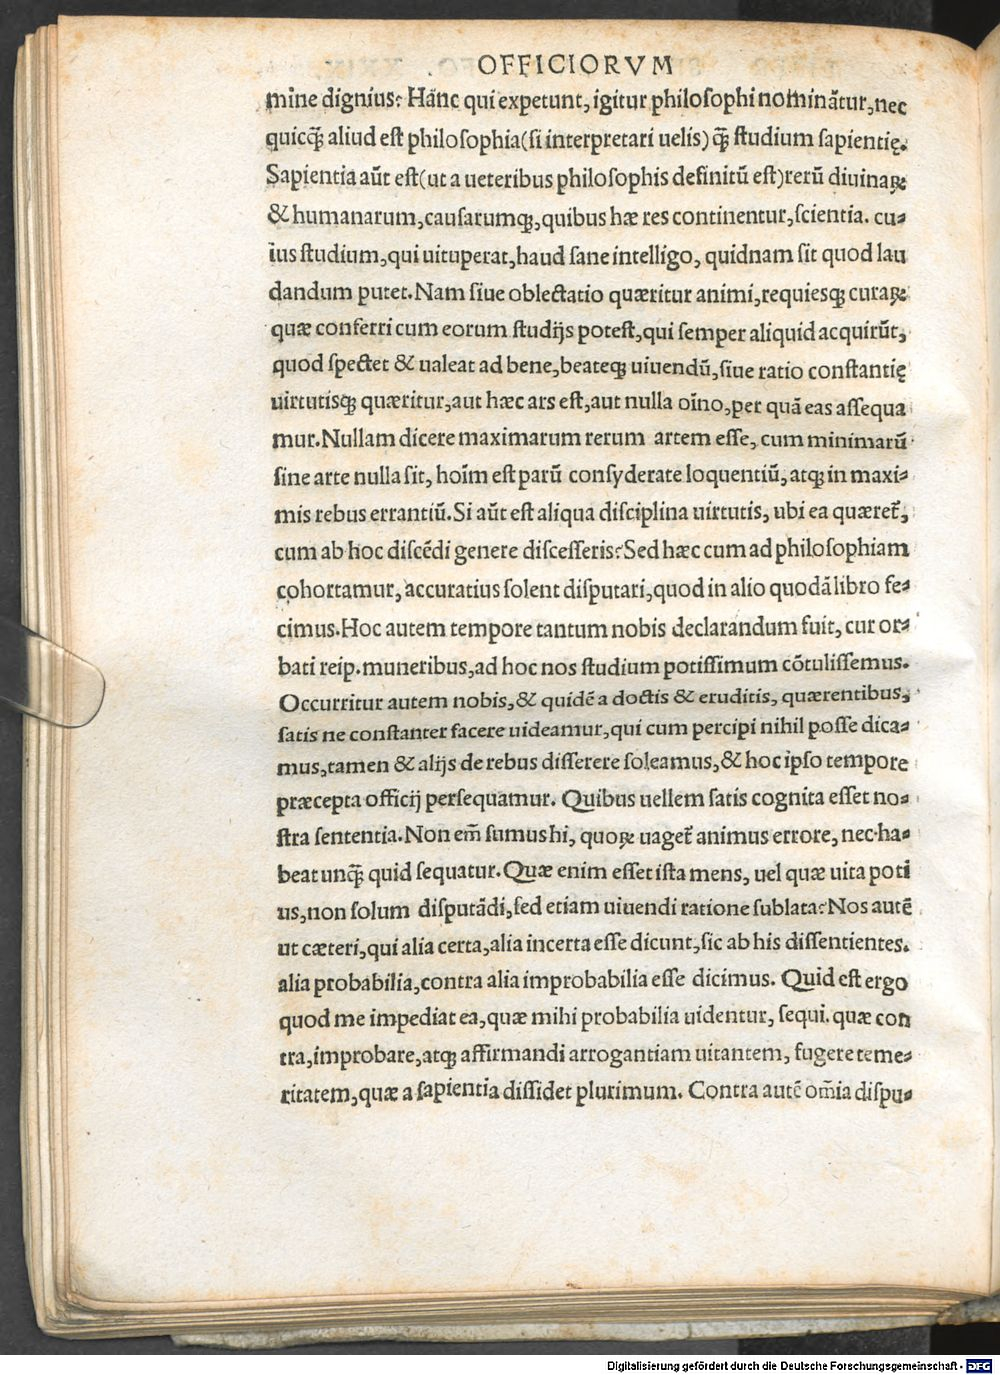 OFFICIORVM
mine dignius? Hāne qui expetunt, igitur philosophi nominātur, nec
quicꝗ̃ aliud est philosophia (si interpretari uelis) ꝗ̃ studium sapientię.
Sapientia aūt est (ut a ueteribus philosophis definitū est) rerū diuinaꝝ
& humanarum, causarumꝗ, quibus hæ res continentur, scientia. cu-
ius studium, qui uituperat, haud sane intelligo, quidnam sit quod lau
dandum putet. Nam siue oblectatio quæritur animi, requiesꝗ curaꝝ
quæ conferri cum eorum studijs potest, qui semper aliquid acquirūt,
quod spectet & ualeat ad bene, beateꝗ uiuendū, siue ratio constantię
uirtutisꝗ quæritur, aut hæc ars est, aut nulla oīno, per quā eas assequa
mur. Nullam dicere maximarum rerum artem esse, cum minimarū
sine arte nulla sit, hoīm est parū consyderate loquentiū, atꝗ in maxi-
mis rebus errantiū. Si aūt est aliqua disciplina uirtutis, ubi ea quæret᷑,
cum ab hoc discēdi genere discesseris? Sed hæc cum ad philosophiam
cohortamur, accuratius solent disputari, quod in alio quodā libro fe-
cimus. Hoc autem tempore tantum nobis declarandum fuit, cur or-
bati reip. muneribus, ad hoc nos studium potissimum cōtulissemus.
Occurritur autem nobis, & quidē a doctis & eruditis, quærentibus,
satis ne constanter facere uideamur, qui cum percipi nihil posse dica-
mus, tamen & alijs de rebus disserere soleamus, & hoc ipso tempore
præcepta officij persequamur. Quibus uellem satis cognita esset no-
stra sententia. Non em̄ sumus hi, quoꝝ uaget᷑ animus errore, nec ha-
beat unꝗ̃ quid sequatur. Quæ enim esset ista mens, uel quæ uita poti
us, non solum disputādi, sed etiam uiuendi ratione sublata? Nos autē
ut cæteri, qui alia certa, alia incerta esse dicunt, sic ab his dissentientes.
alia probabilia, contra alia improbabilia esse dicimus. Quid est ergo
quod me impediat ea, quæ mihi probabilia uidentur, sequi. quæ con
tra, improbare, atꝗ affirmandi arrogantiam uitantem, fugere teme-
ritatem, quæ a sapientia dissidet plurimum. Contra autē om̄ia dispu-
Digitalisierung gefördert durch die Deutsche Forschungsgemeinschaft - DFG